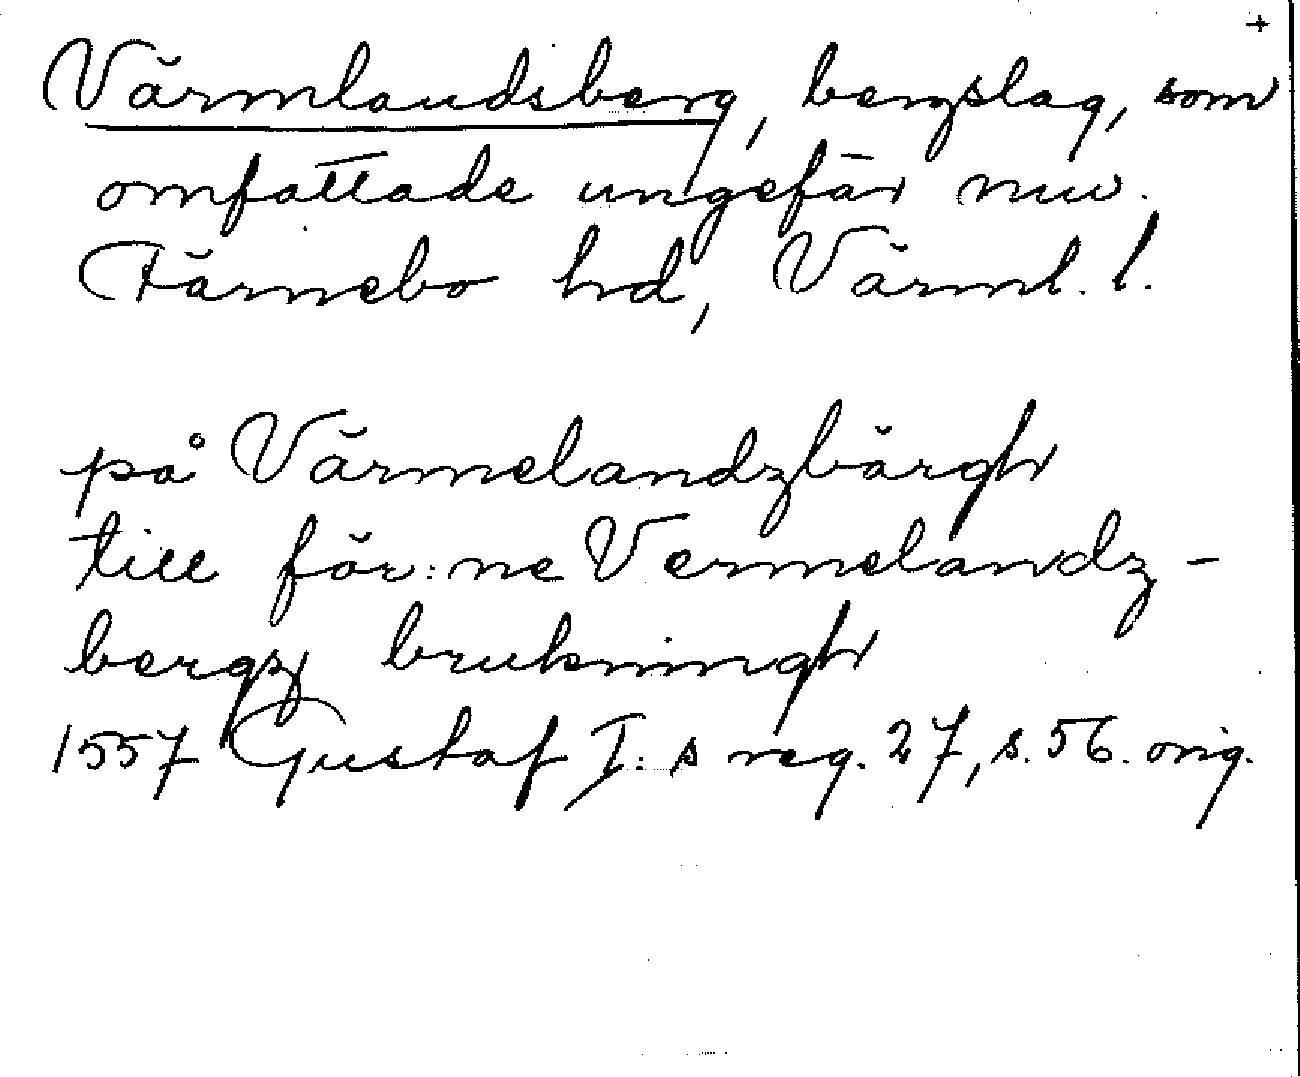 +
Värmlandsberg, bergslag, som
omfattade ungefär nuv.
Färnebo hd, Värml. l.
på Värmelandzbärgh
till för:ne Vermelandz-
bergz brukningh
1557 Gustaf I:s reg. 27, s. 56. orig.